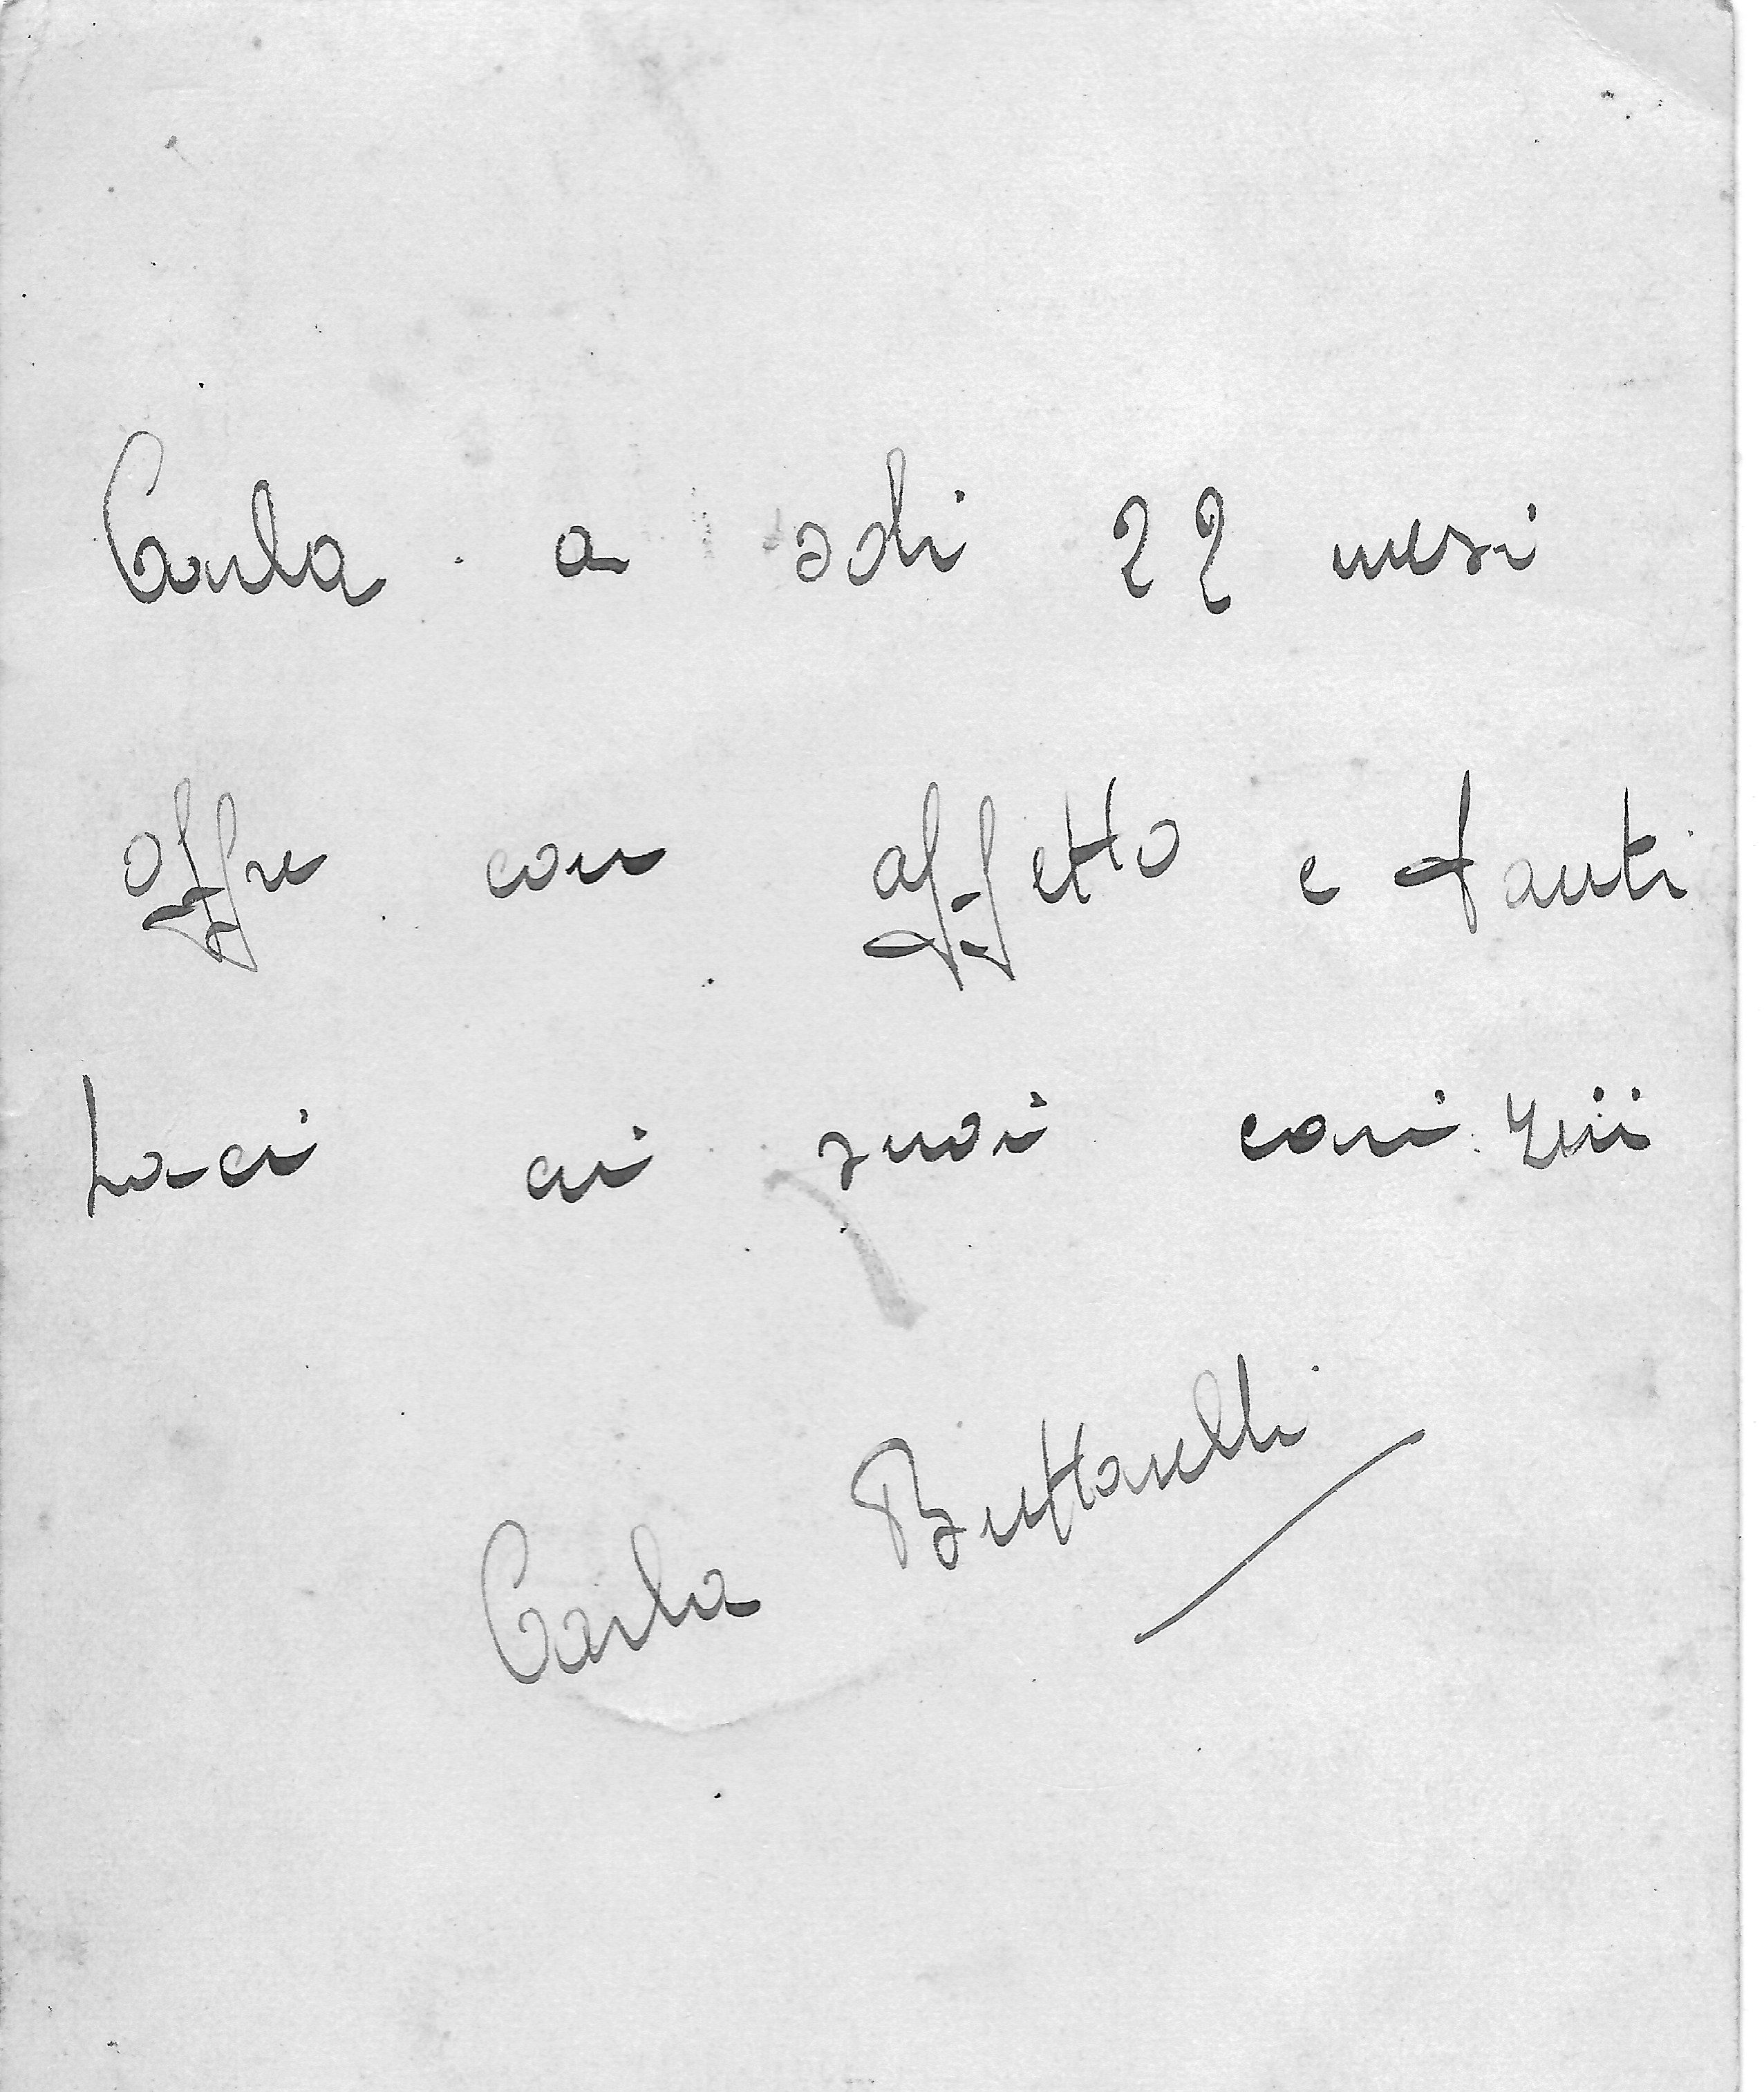 Carla a soli 22 mesi
offre con affetto e tanti
baci ai suoi cari zii
Carla Buttarelli